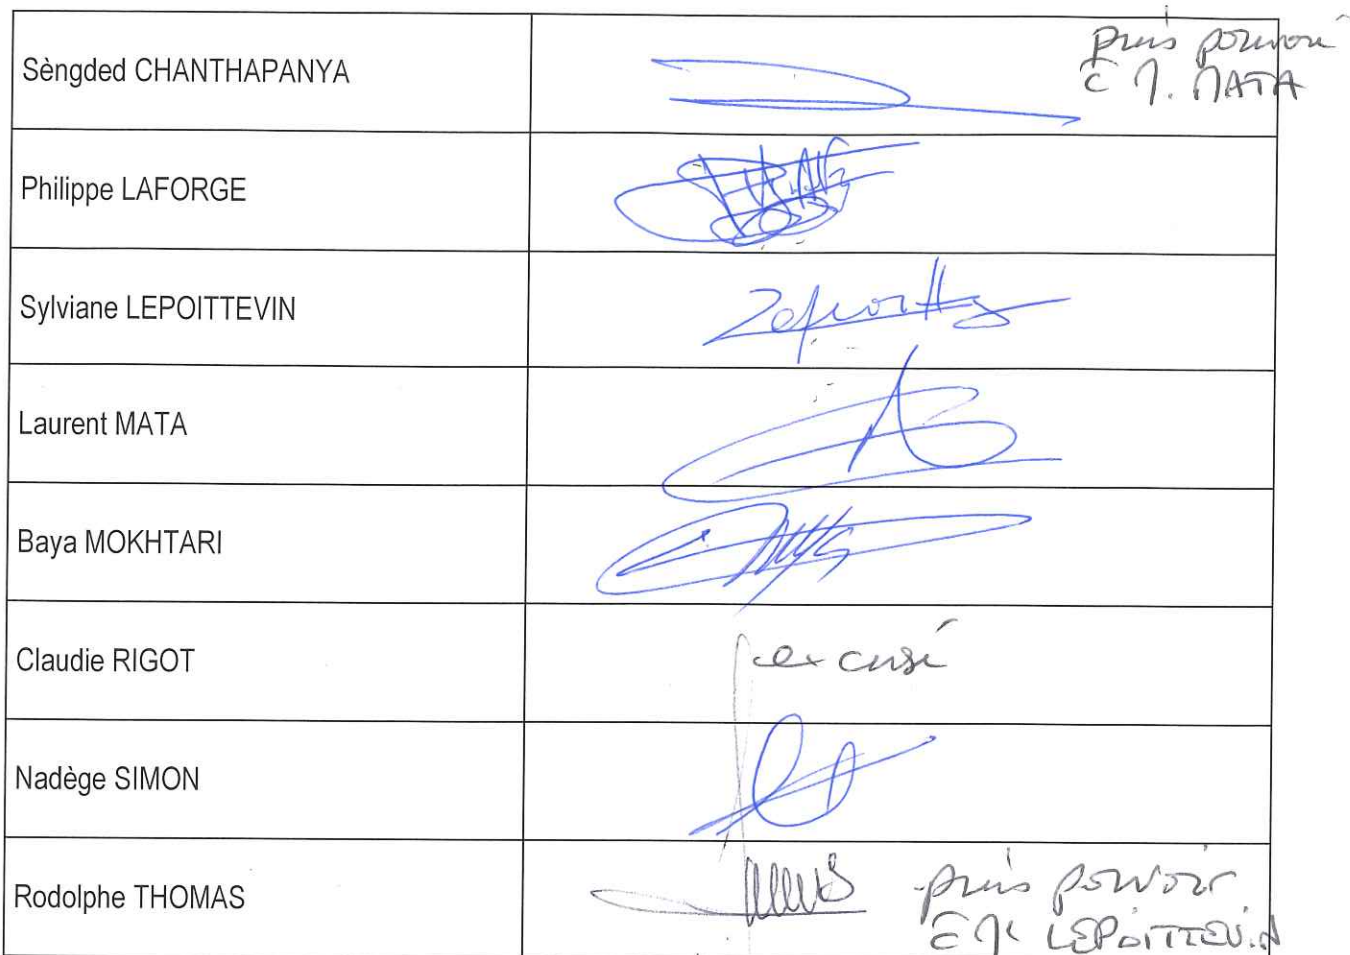 Sèngded CHANTHAPANYA
puis pouvoir
à M. MATA
Philippe LAFORGE
Sylviane LEPOITTEVIN
Laurent MATA
Baya MOKHTARI
Claudie RIGOT
excusé
Nadège SIMON
Rodolphe THOMAS
puis pouvoir
LEPOITTEVIN